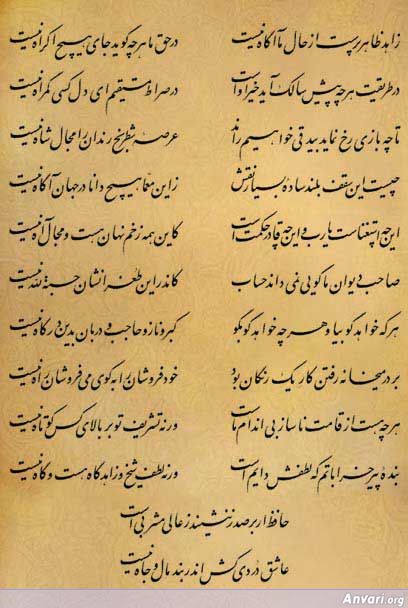 زاهد ظاهر پرست از حال ما آگاه نیست در حق ما هر چه گوید جای هیچ اکراه نیست
در طریقت هر چه پیش سالک آید خیر اوست در صراط مستقیم ای دل کسی گمراه نیست
تا چه بازی رخ نماید بیدقی خواهیم راند عرصه شطرنج رندان را مجال شاه نیست
چیست این سقف بلند ساده بسیار نقش زین معما هیچ دانا در جهان آگاه نیست
این چه استغناست یارب وین چه قادر حکمت است کاین همه زخم نهان هست و مجال آه نیست
صاحب دیوان ما گویی نمی داند حساب کاندر این طغرا نشان حسبة لله نیست
هر که خواهد گو بیا و هر چه خواهد گو بگو کبر و ناز و حاجب و دربان بدین درگاه نیست
بر در میخانه رفتن کار یک رنگان بود خود فروشان را به کوی می فروشان راه نیست
هر چه هست از قامت ناساز بی اندام ماست ورنه تشریف تو بر بالای کس کوتاه نیست
بنده پیر خراباتم که لطفش دایم است ورنه لطف شیخ و زاهد گاه هست و گاه نیست
حافظ ار بر صدر ننشیند ز عالی مشربی است
عاشق دردی کش اندر بند مال و جاه نیست
Anvari.org